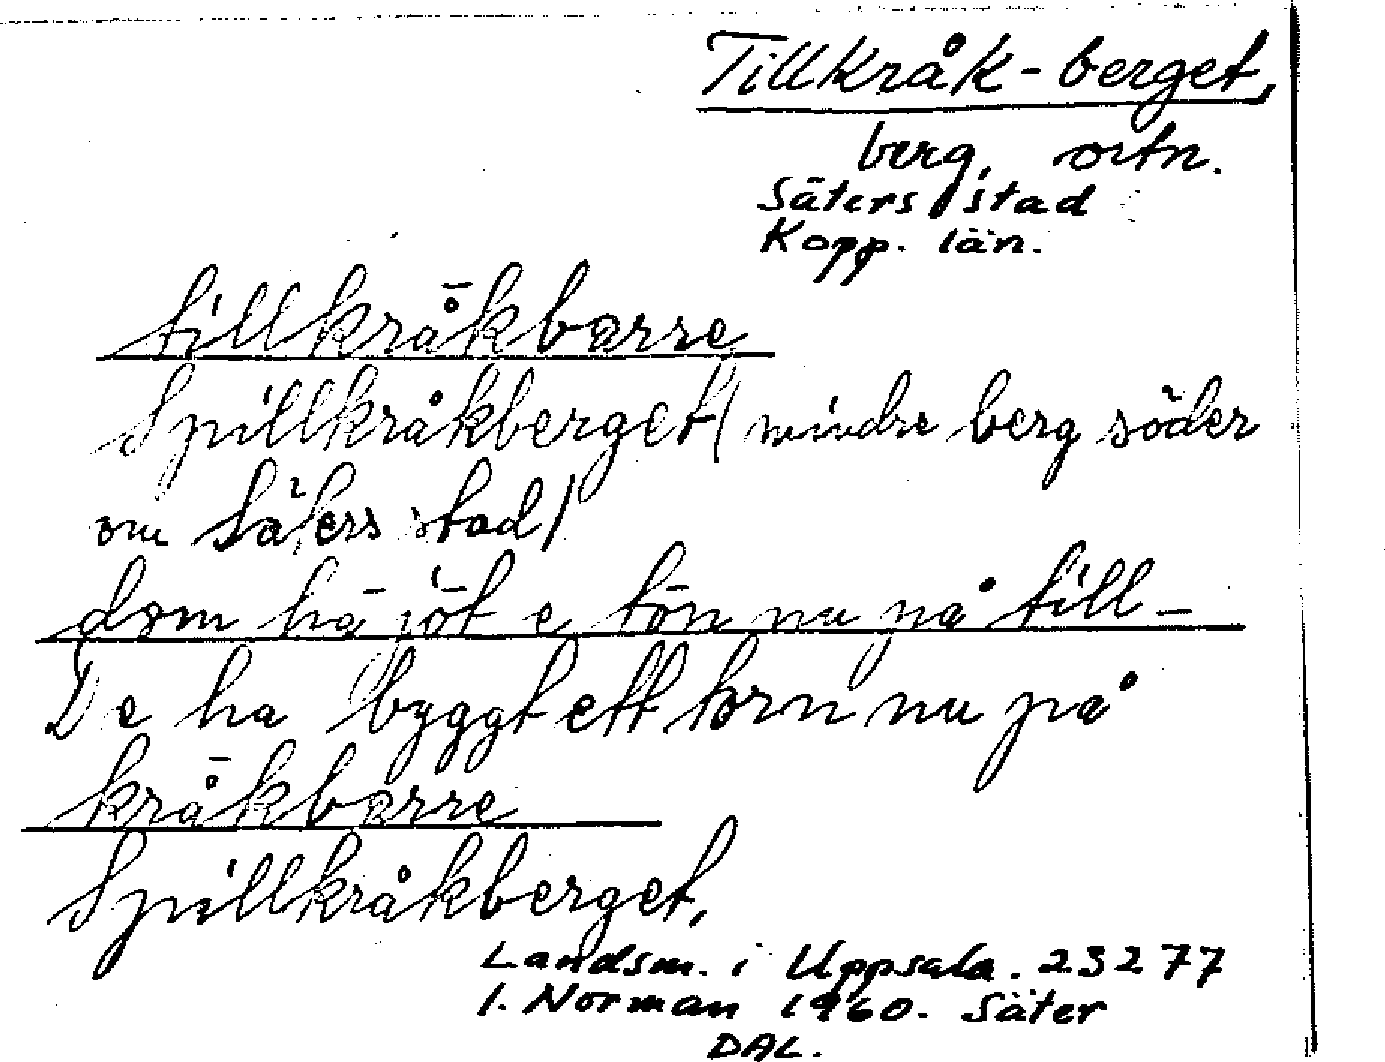 Tillkråk-berget,
berg, ortn.
Säters stad
Kopp. län.
tillkrå̄kbarre
Spillkråkberget (mindre berg söder
om Säters stad)
dom hā jōt e tōn nu på till-
De ha byggt ett torn nu på
krå̄kbarre
Spillkråkberget,
Landsm. i Uppsala. 23277
I. Norman 1960. Säter
DAL.